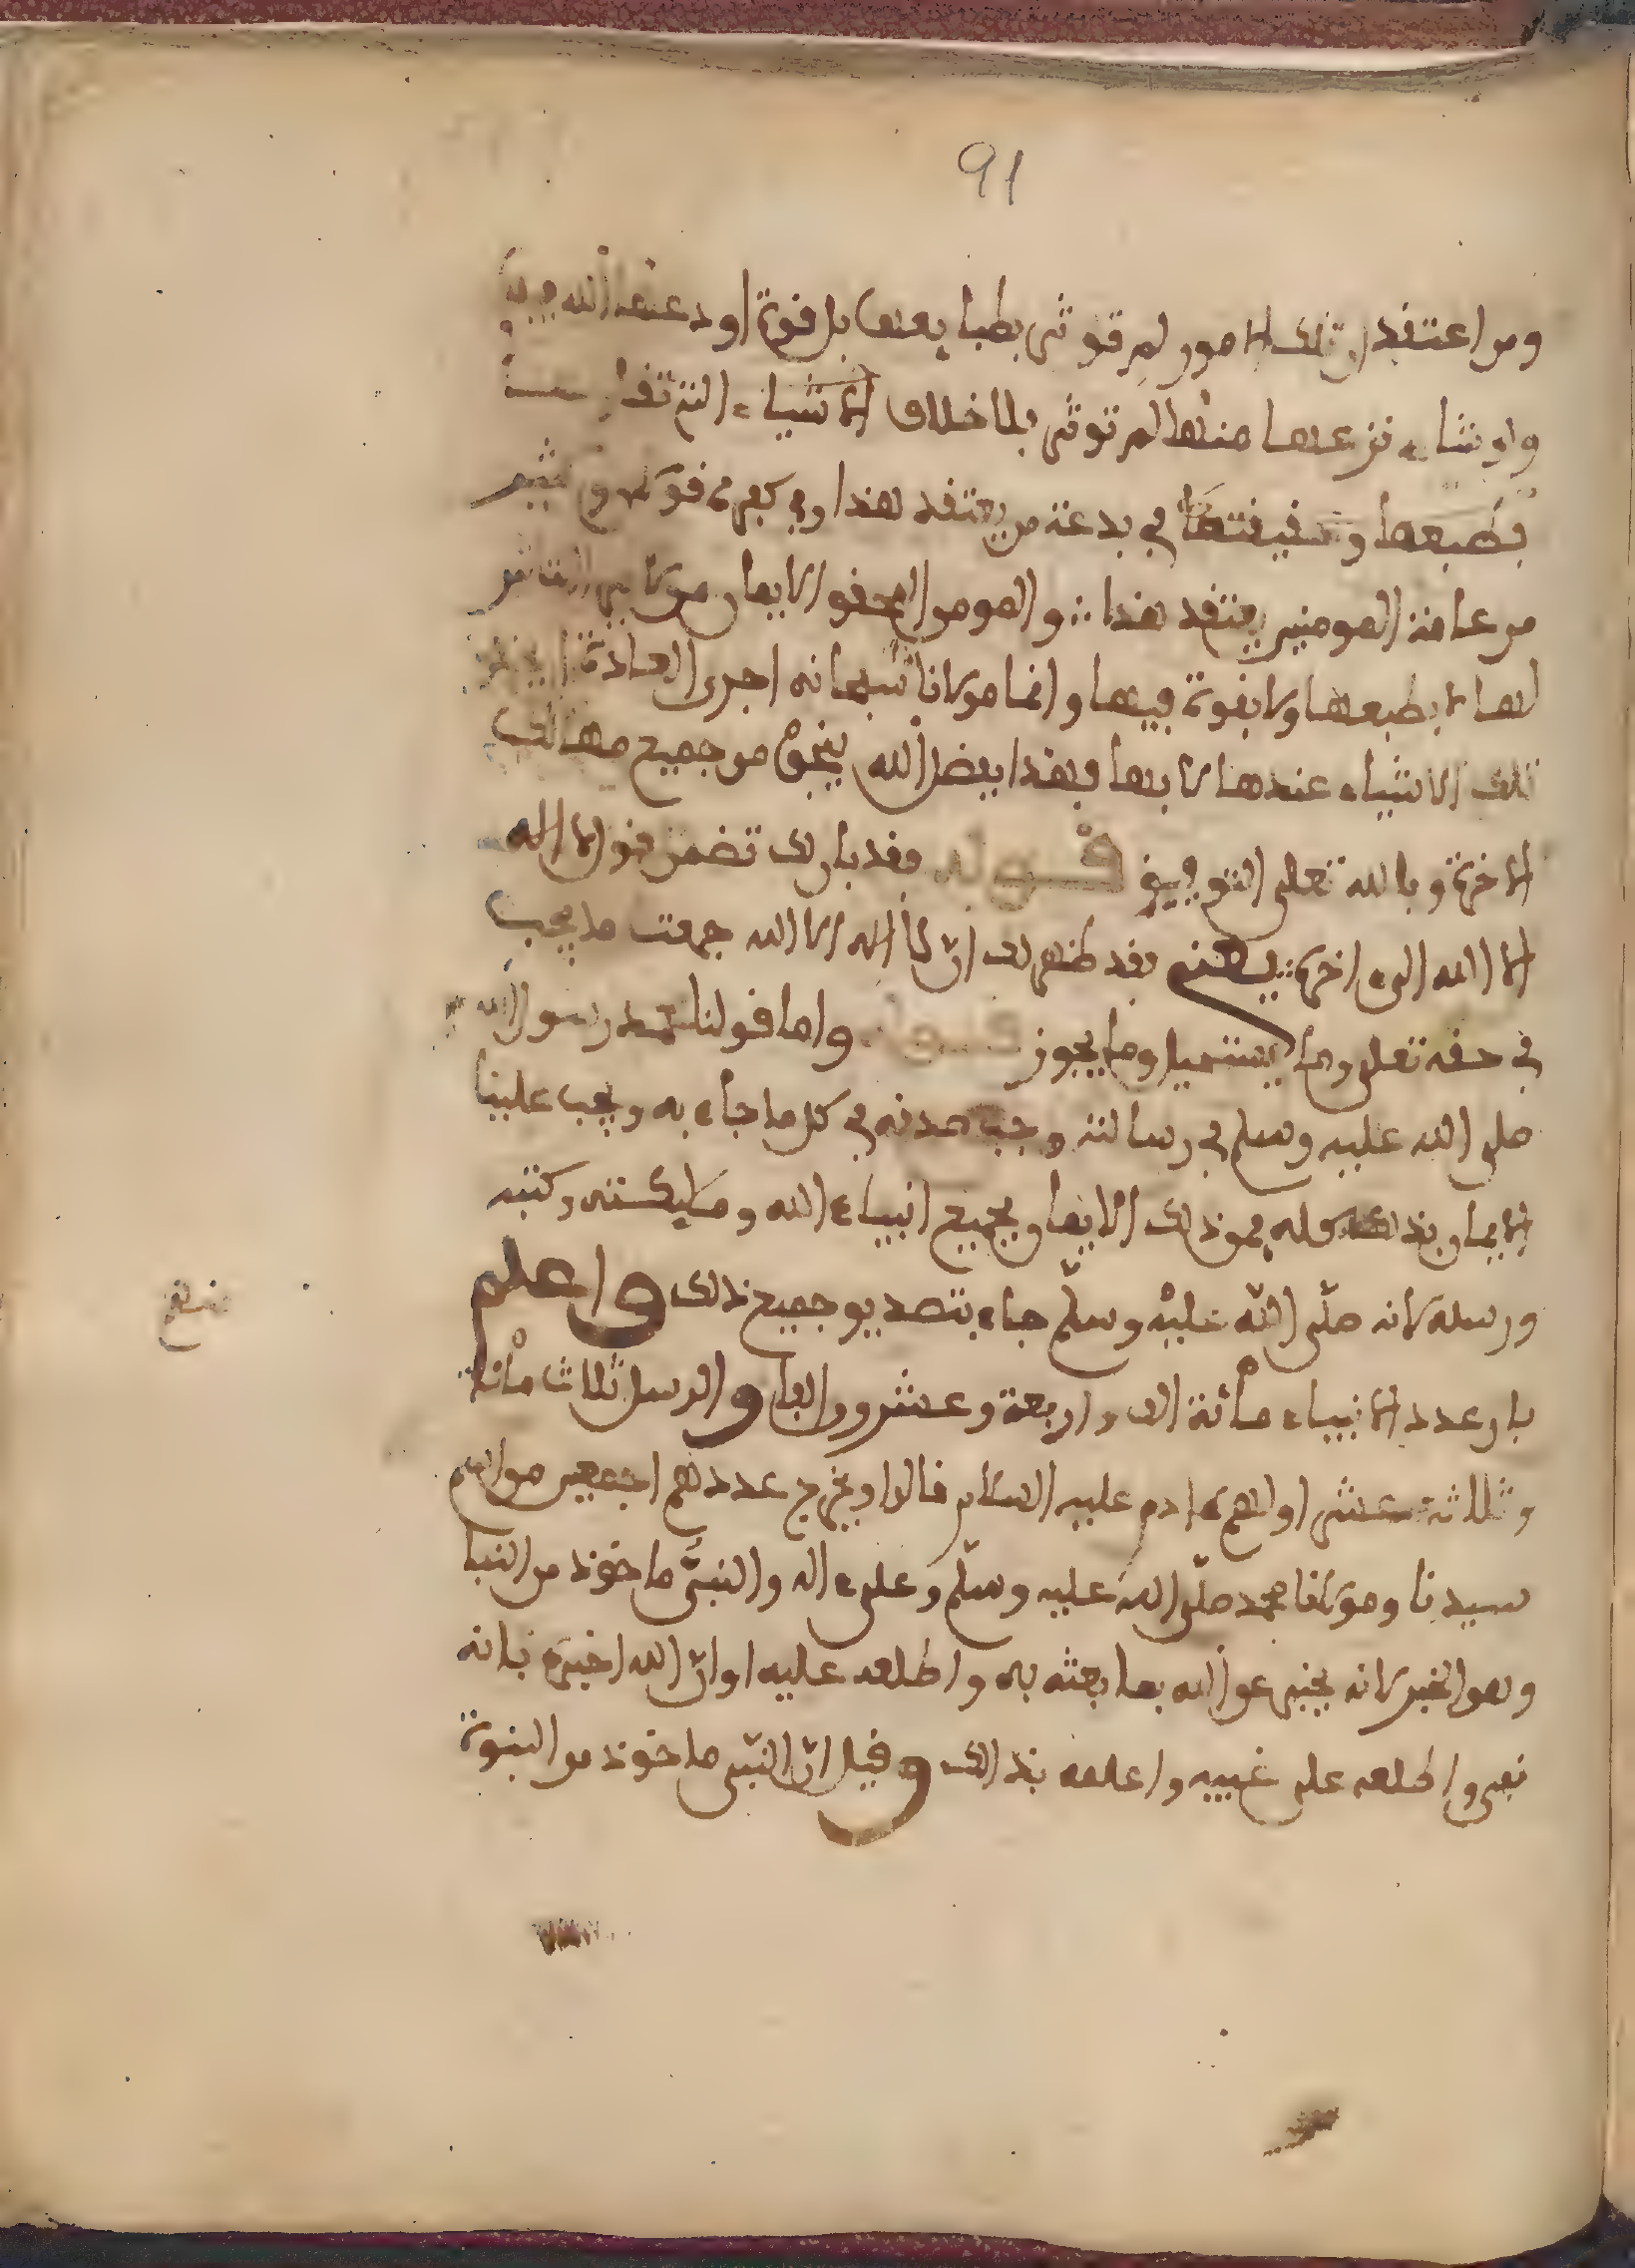 91
ومن اعتقد ان تلك الامور لم توثر بطبايعها بل بقوة اودعها الله فيها
ولو شاء نزعها منها لم توثر بلا خلاف الاشياء التي
بطبعها وحقيقتها في بدعة من يعتقد هذا وفي كفره قولان وكثير
من عامة المومنين يعتقد هذا ∴ والمومن المحقق الايمان من لا يرى التاثير
لها لا بطبعها ولا بقوة فيها وانما مولانا سبحانه اجرى العادة ان يخلق
تلك الاشياء عندها لا بها فبهذا بفضل الله ينجو من جميع مهالك
الاخرة وبالله تعلى التوفيق قوله فقد بان لك تضمن قول لا اله
الا الله الى اخره ∴ يعني فقد ظهر لك ان لا اله الا الله جمعت ما يجب
في حقه تعلى وما يستحيل وما يجوز قوله واما قولنا محمد رسول الله
صلى الله عليه وسلم في رسالته وجب صدقه في كل ما جاء به ويجب علينا
الايمان بذلك كله فمن ذلك الايمان بجميع انبياء الله وملائكته وكتبه
ورسله لانه صلّى اللّه عليْه وسلّم جاء بتصديق جميع ذلك واعلم
بان عدد الانبياء مائة الف واربعة وعشرون الفا والرسل ثلاث مائة
وثلاثة عشر اولهم ءادم عليه السلام قالوا ويخرج عددهم اجمعين من اسم
سيدنا ومولانا محمد صلّى الله عليه وسلّم وعلى ءاله والنبيّ ماخوذ من النبا
وهو الخبر لانه يخبر عن الله بما بعثه به واطلعه عليه او انّ الله اخبره بانه
نبي واطلعه على غيبه واعلمه بذالك وقيل انّ النبّي ماخوذ من النبوة